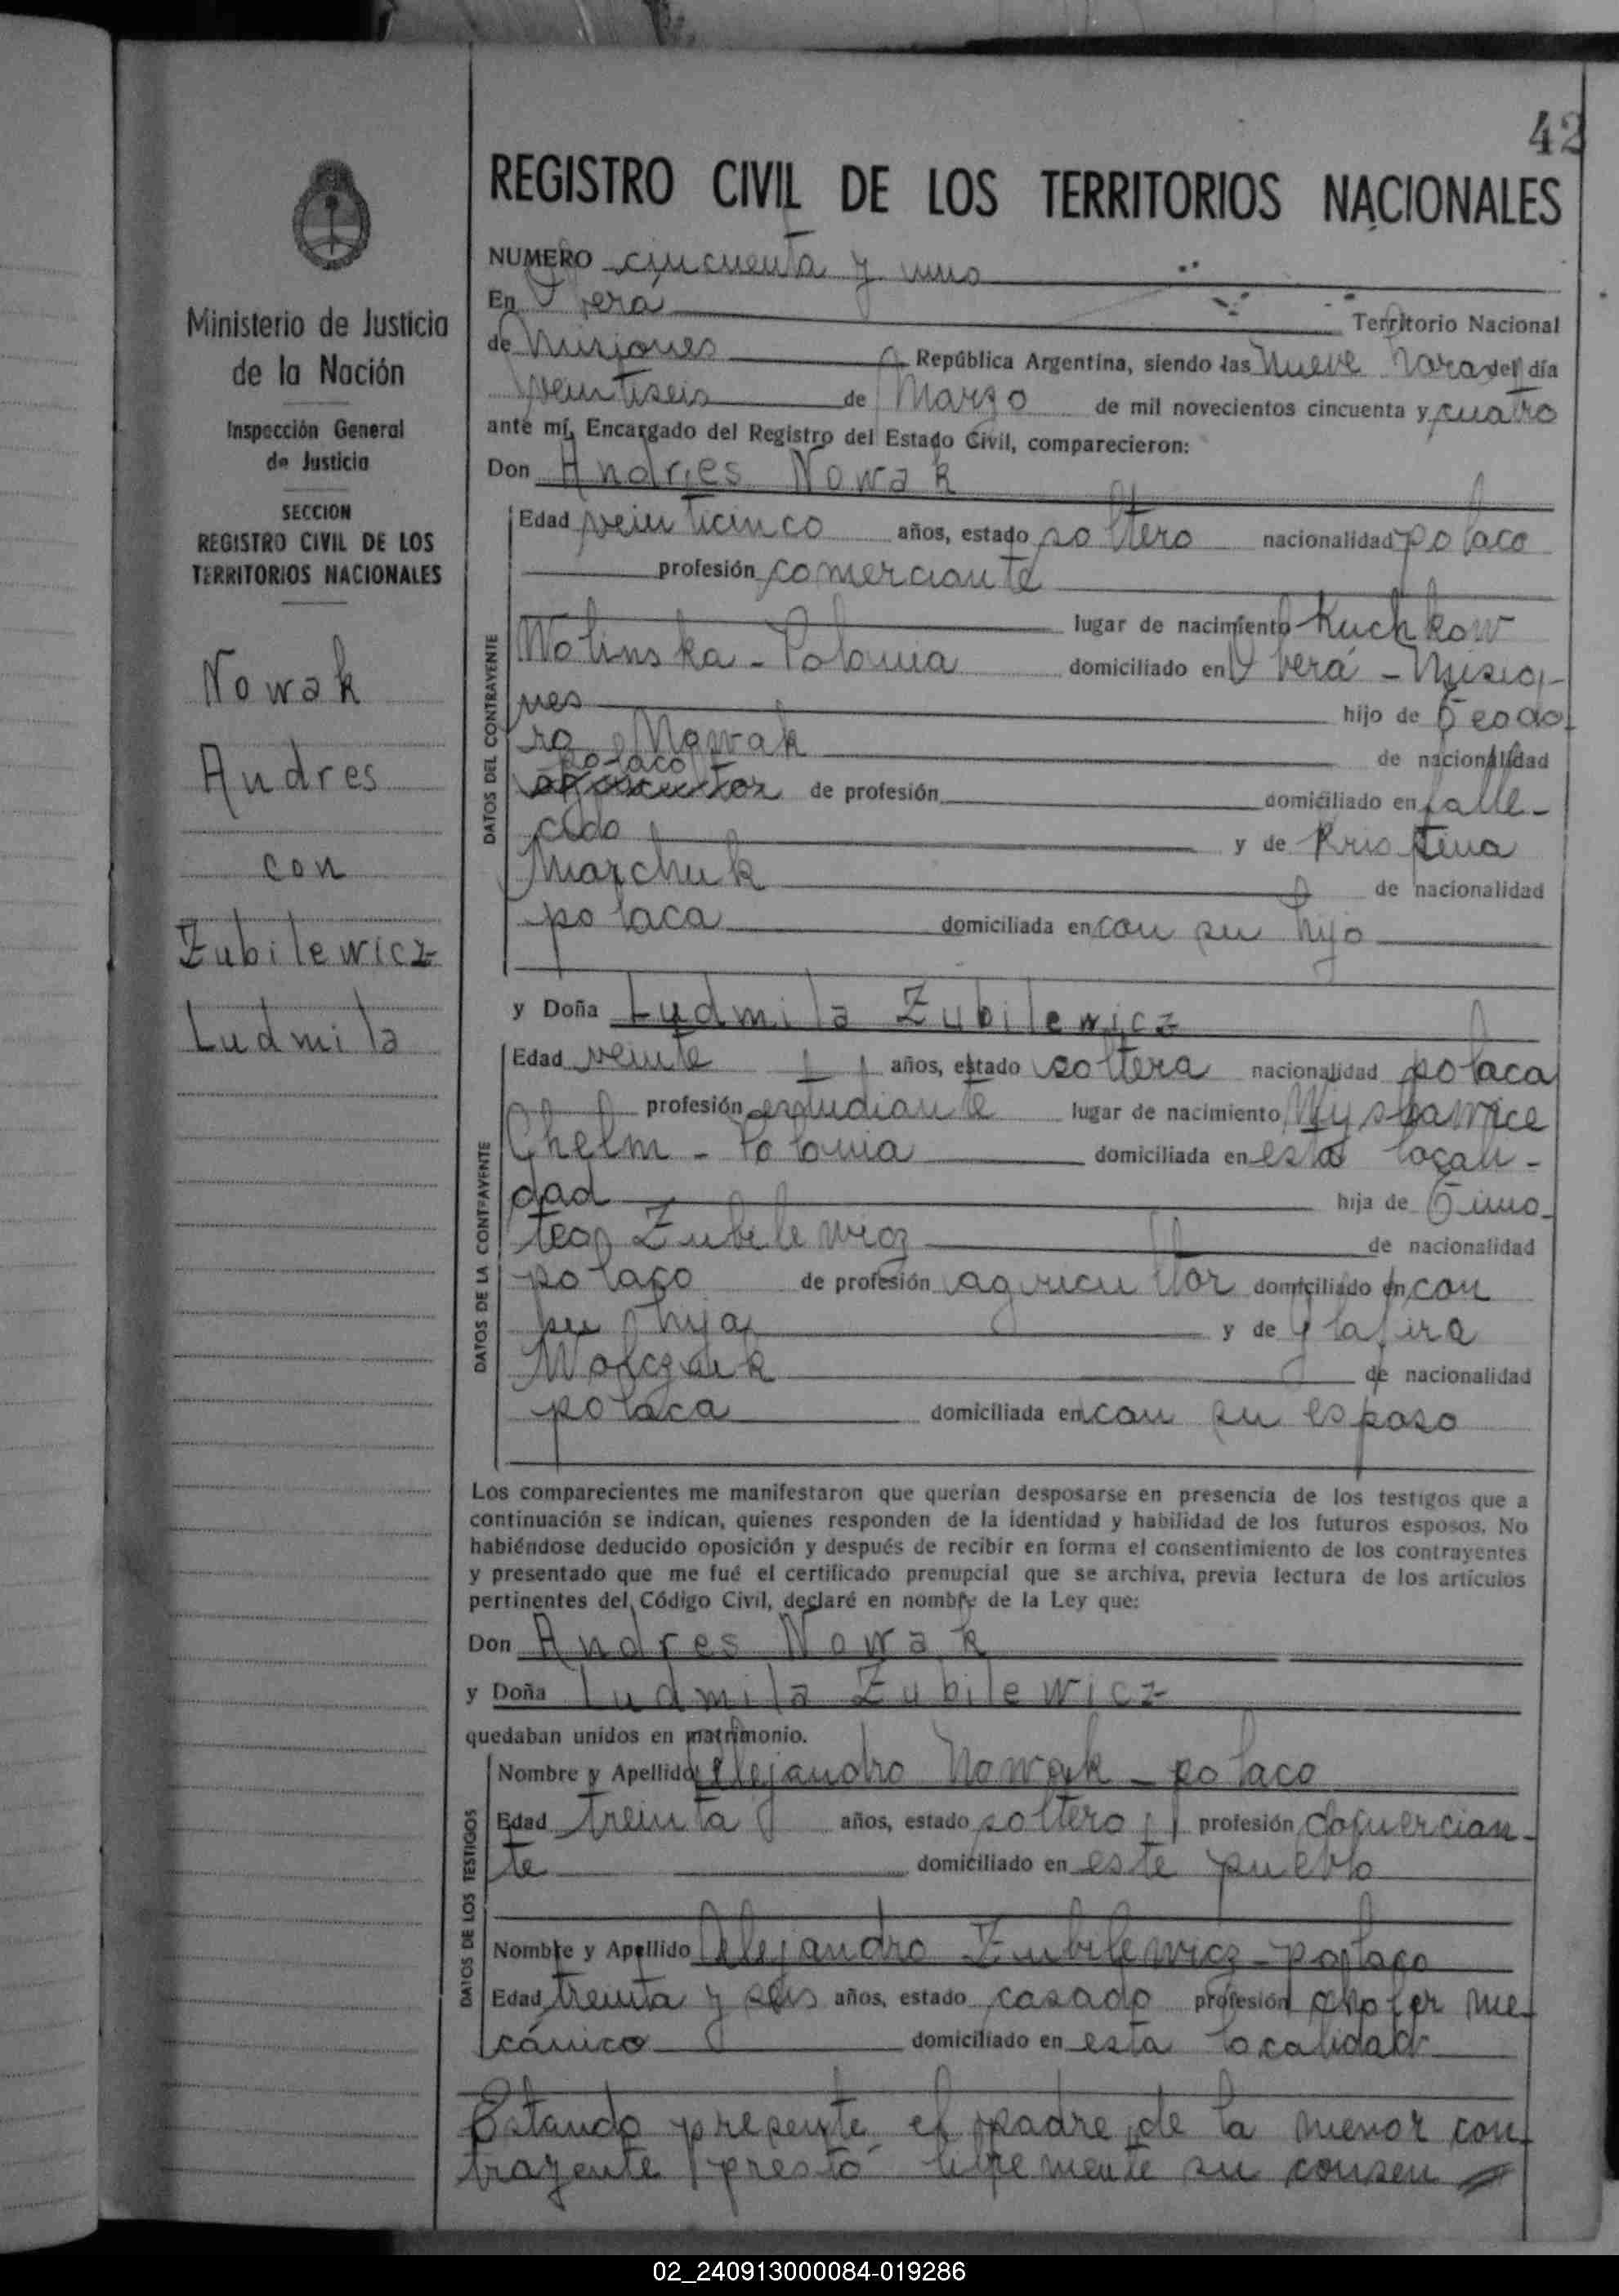 42
REGISTRO CIVIL DE LOS TERRITORIOS NACIONALES
NUMERO cincuenta y uno
En Oberá Territorio Nacional
de Misiones República Argentina, siendo las nueve horas del día
veintiseis de Marzo de mil novecientos cincuenta y cuatro
ante mí, Encargado del Registro del Estado Civil, comparecieron:
Don Andres Nowak
DATOS DEL CONTRAYENTE
Edad veinticinco años, estado soltero nacionalidad polaco
profesión comerciante
lugar de nacimiento Kuchkow
Wolinska - Polonia domiciliado en Oberá - Misio-
nes hijo de Teodo-
ro Nowak de nacionalidad
polaco
de profesión domiciliado en falle-
cido y de Kristina
Marchuk de nacionalidad
polaca domiciliada en con su hijo
y Doña Ludmila Zubilewicz
DATOS DE LA CONTRAYENTE
Edad veinte años, estado soltera nacionalidad polaca
profesión estudiante lugar de nacimiento
Chelm - Polonia domiciliada en esta locali-
dad hija de Timo-
teo Zubilewicz de nacionalidad
polaco de profesión agricultor domiciliado en con
su hija y de Glafira
de nacionalidad
polaca domiciliada en con su esposo
Los comparecientes me manifestaron que querían desposarse en presencia de los testigos que a
continuación se indican, quienes responden de la identidad y habilidad de los futuros esposos. No
habiéndose deducido oposición y después de recibir en forma el consentimiento de los contrayentes
y presentado que me fué el certificado prenupcial que se archiva, previa lectura de los artículos
pertinentes del Código Civil, declaré en nombre de la Ley que:
Don Andres Nowak
y Doña Ludmila Zubilewicz
quedaban unidos en matrimonio.
DATOS DE LOS TESTIGOS
Nombre y Apellido Alejandro Nowak - polaco
Edad treinta años, estado soltero profesión comercian-
te domiciliado en este pueblo
Nombre y Apellido Alejandro Zubilewicz - polaco
Edad treinta y seis años, estado casado profesión chofer me-
cánico domiciliado en esta localidad
Estando presente el padre de la menor con-
trayente prestó libremente su consen
Ministerio de Justicia
de la Nación
Inspección General
de Justicia
SECCION
REGISTRO CIVIL DE LOS
TERRITORIOS NACIONALES
Nowak
Andres
con
Zubilewicz
Ludmila
02_240913000084-019286